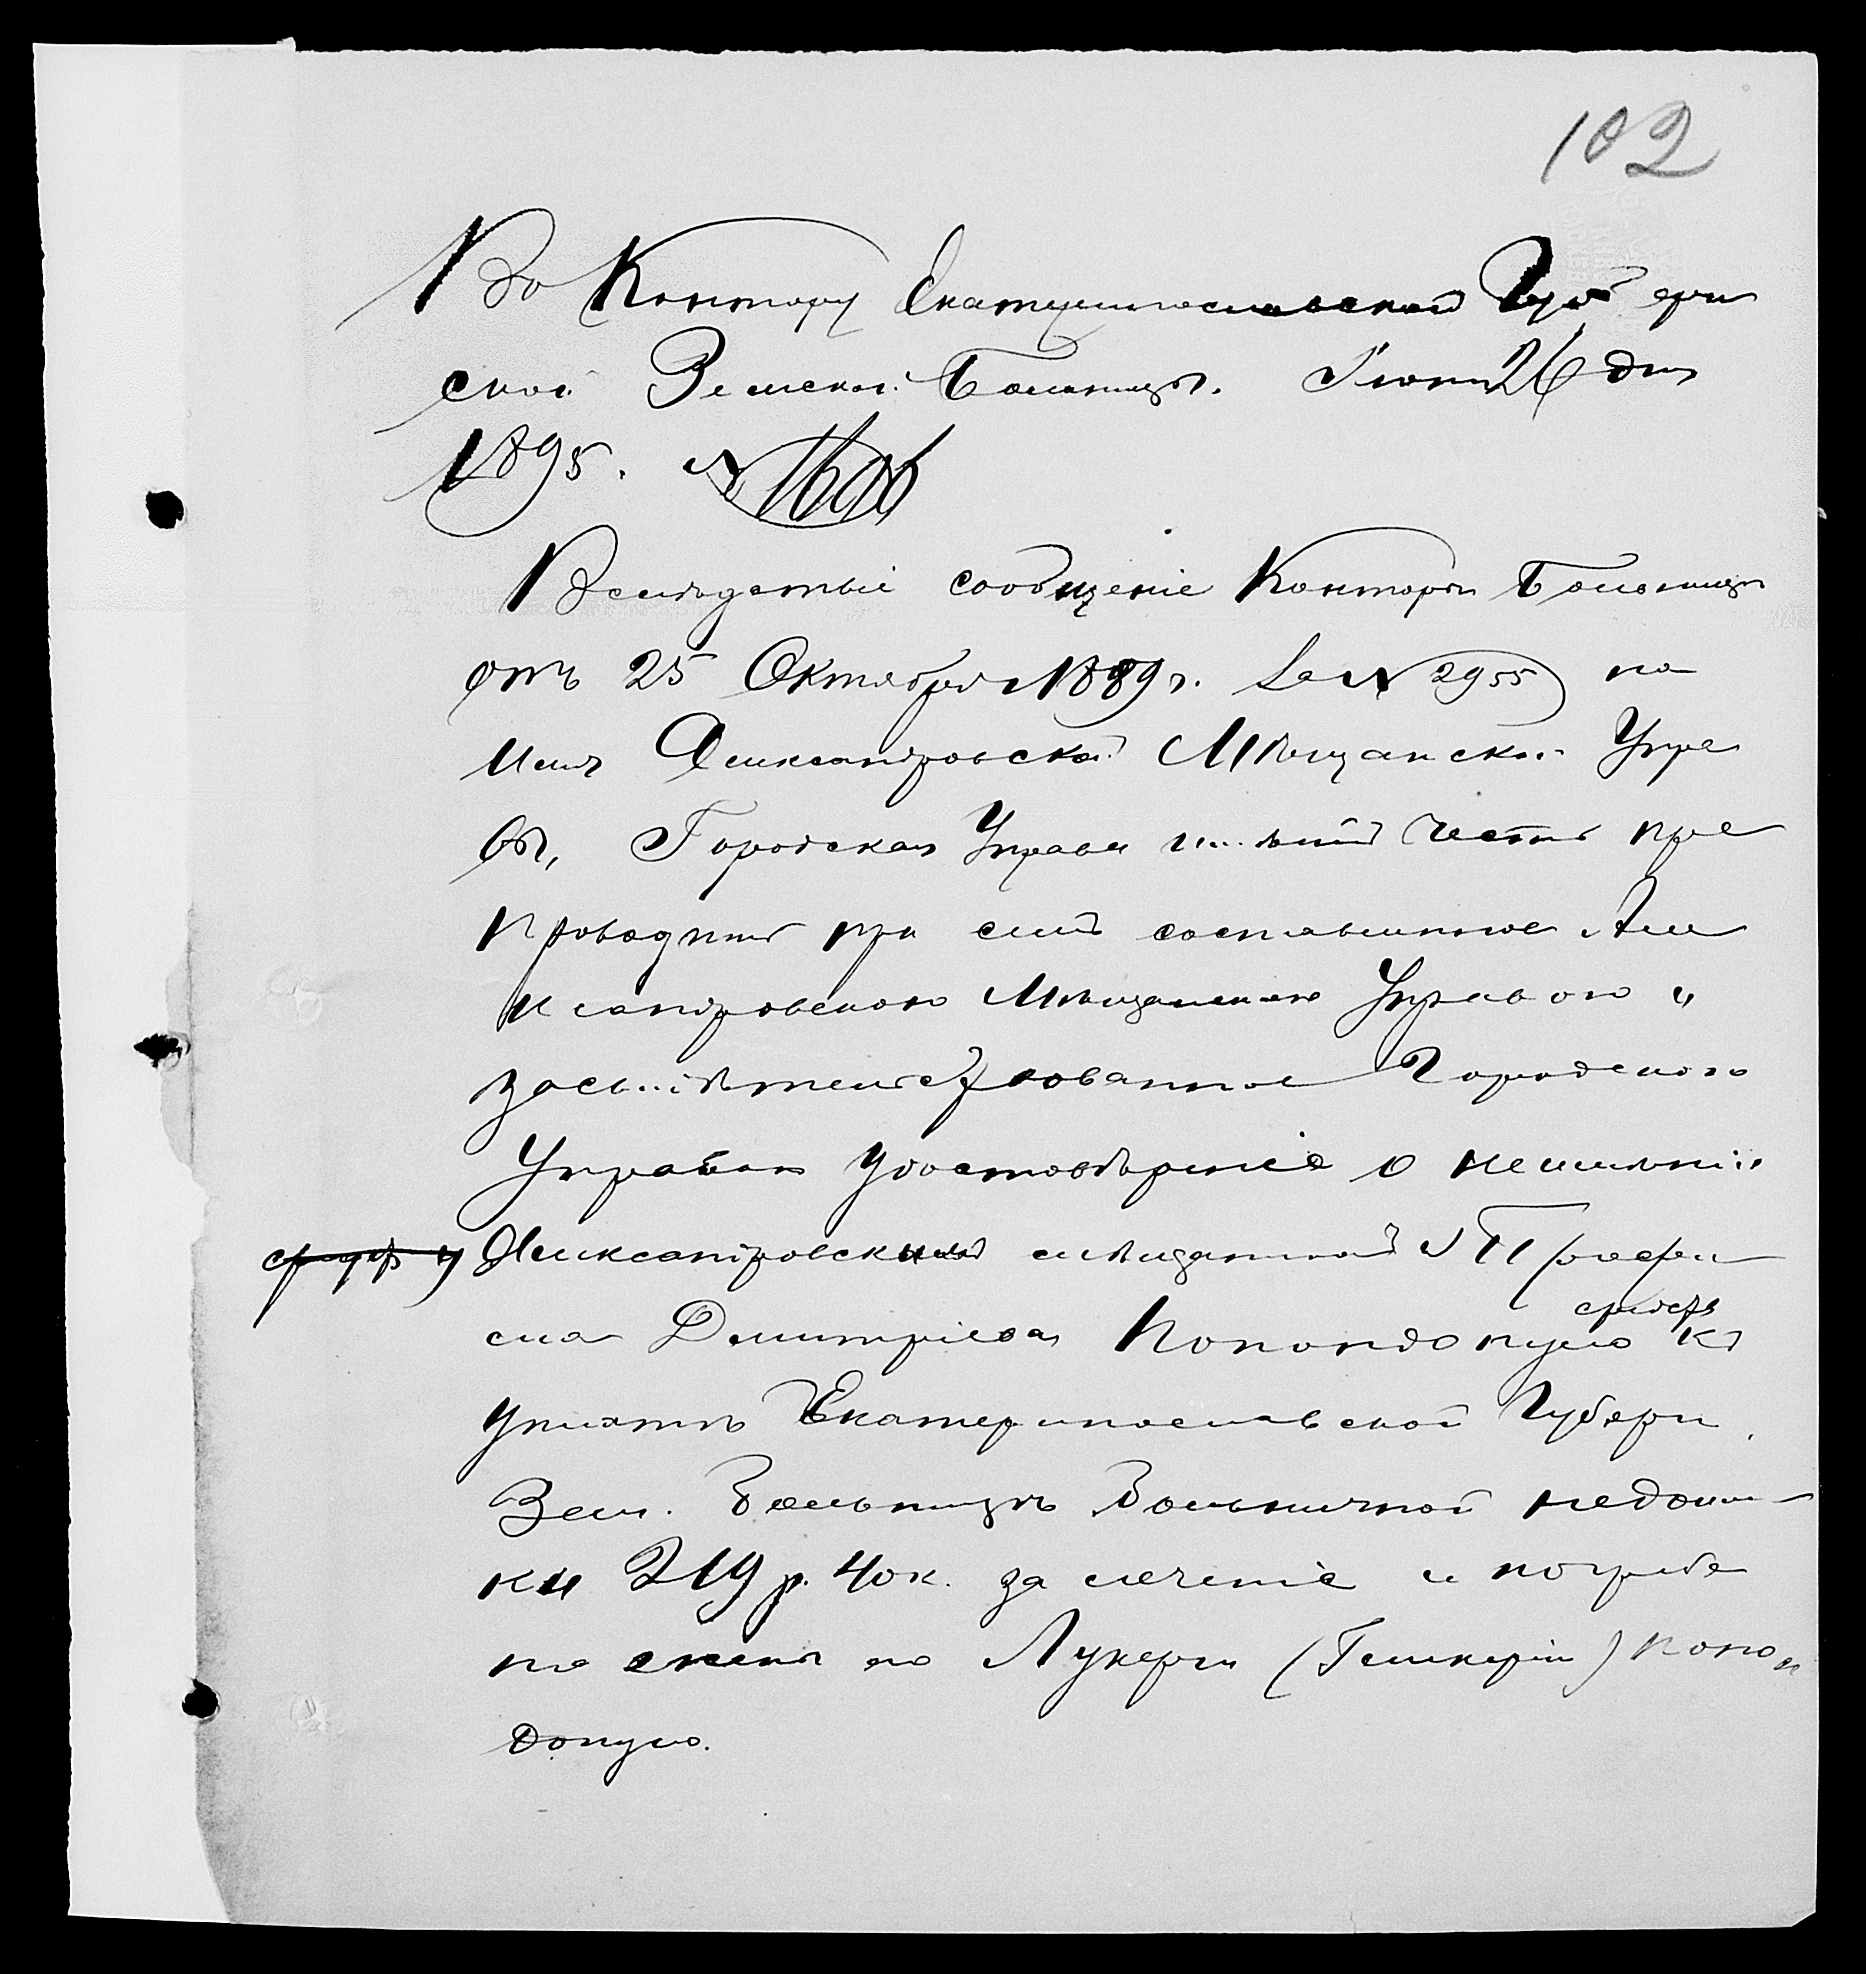 102
Въ Контору Екатеринославской Губерн
ской Земской Больницы. Іюня 26 дня
1895. №
Вслѣдствіе сообщенія Конторы Больницы
отъ 25 Октября 1889 г. за № 2955 на
имя Александровской Мѣщанской Упра
вы, Городская Управа имѣетъ честь пре
проводить при семъ составленное Але
ксандровскою Мѣщанскою Управою и
засвидѣтельствованное Городскою
Управою удостовѣреніе о неимѣніи
Александровскимъ мѣщаниномъ
Дмитріева Попондопуло средствъ къ
уплатѣ Екатеринославской Губерн.
Зем. Больницѣ больничной недоим
ки 219 р. 40 к. за леченіе и погребе
ніе жены его Лукерьи (Гликеріи) Попон
допуло.